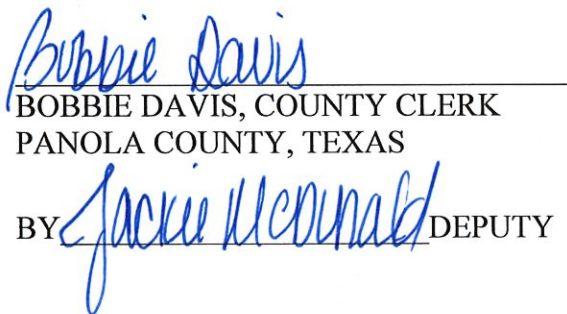 Bobbie Davis
BOBBIE DAVIS, COUNTY CLERK
PANOLA COUNTY, TEXAS
BY Jackie McDonald DEPUTY